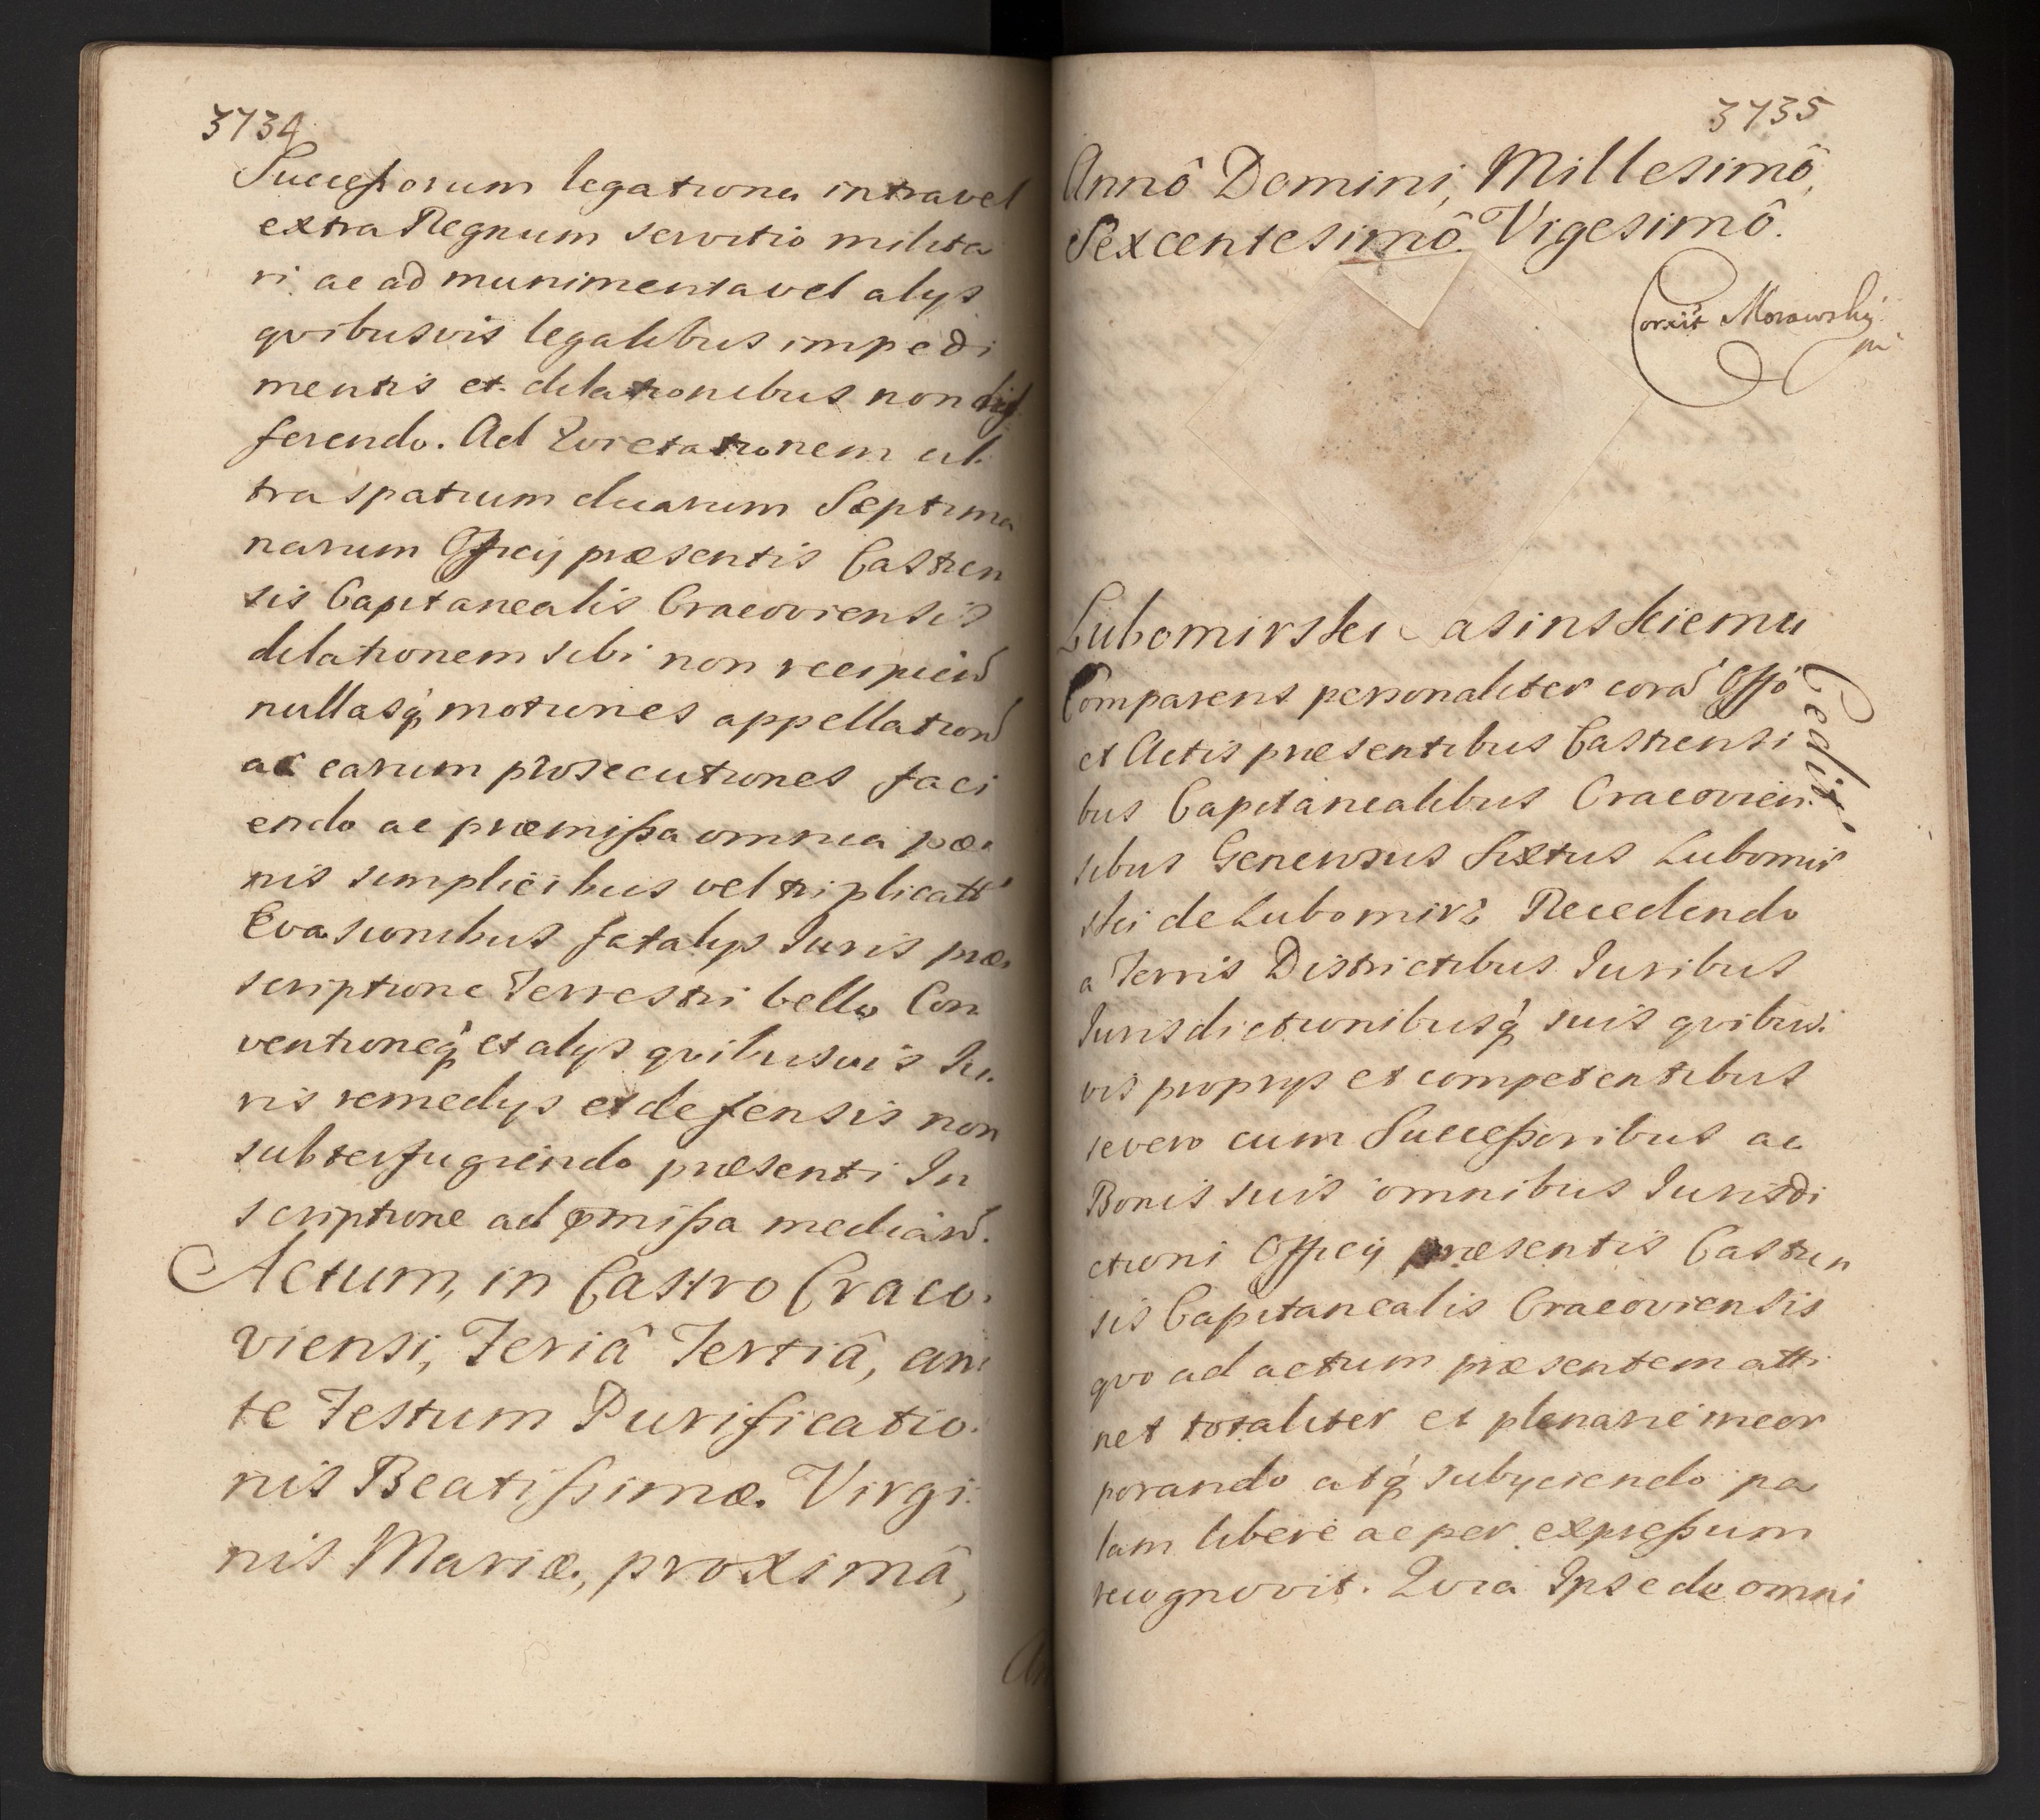 3734
Successorum legatione intra vel
extra Regnum servitio milita
ri ac ad munimenta vel alys
qvibusvis legalibus impedi
mentis et dilationibus non dif
ferendo. Ad Qvietationem ul
tra spatium duarum Septima
narum Officij præsentis Castren
sis Capitanealis Cracoviensis
dilationem sibi non recipien̄
nullasq́ motiones appellation̄
ac earum prosecutiones faci
endo ac præmissa omnia pæ
nis simplicibus vel triplicatt
Evasionibus fatalys Iuris præ
scriptione Terrestri bello Con
ventioneq́ et alys qvibusvis Iu
ris remedys et defensis non
subterfugiendo præsenti In
scriptione ad pmissa median̄.
Actum, in Castro Craco
viensi, Feriâ Tertiâ, an
te Festum Purificatio
nis Beatissimæ Virgi
nis Mariæ, proximâ,
3735
Annô Domini, Millesimô,
Sexcentesimô Vigesimô.
Correxit Morawsky
mp
Lubomirski asinskiemu
Cedit
Comparens personaliter corā Offo
et Actis præsentibus Castrensi
bus Capitanealibus Cracovien
sibus Generosus Sixtus Lubomir
ski de Lubomirz Recedendo
a Terris Districtibus Iuribus
Iurisdictionibusq́ suis qvibus
vis proprys et competentibus
se vero cum Successoribus ac
Bonis suis omnibus Iurisdi
ctioni Officij præsentis Castren
sis Capitanealis Cracoviensis
qvo ad actum præsentem atti
net totaliter et plenarie incor
porando atq́ subyciendo pa
lam libere ac per expressum
recognovit. Qvia Ipse de omni